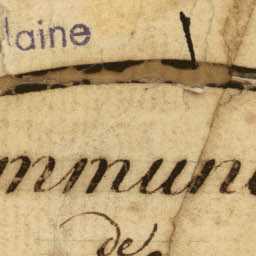 laine
mmun
de